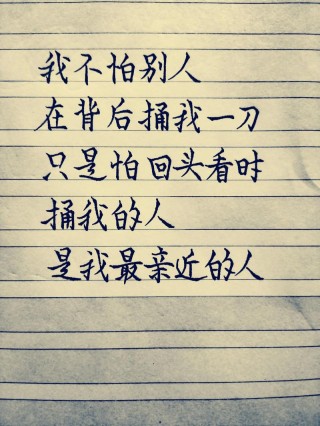 我不怕别人
在背后捅我一刀
只是怕回头看时
捅我的人
是我最亲近的人